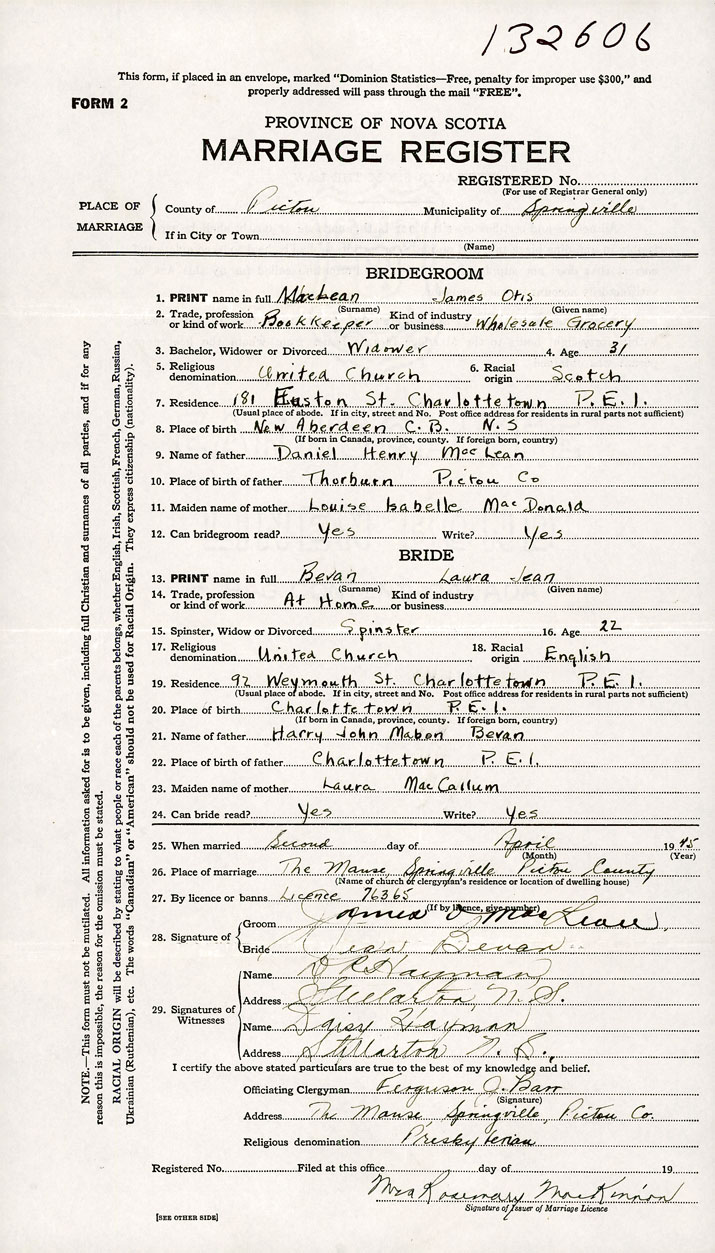 132606
This form, if placed in an envelope, marked "Dominion Statistics—Free, penalty for improper use $300," and
properly addressed will pass through the mail "FREE".
FORM 2
PROVINCE OF NOVA SCOTIA
MARRIAGE REGISTER
REGISTERED No.
(For use of Registrar General only)
PLACE OF MARRIAGE
County of Pictou Municipality of Springville
If in City or Town
(Name)
BRIDEGROOM
1. PRINT name in full MacLean James Otis
(Surname) (Given name)
2. Trade, profession or kind of work Bookkeeper Kind of industry or business Wholesale Grocery
3. Bachelor, Widower or Divorced Widower 4. Age 31
5. Religious denomination United Church 6. Racial origin Scotch
7. Residence 181 Euston St. Charlottetown P.E.I.
(Usual place of abode. If in city, street and No. Post office address for residents in rural parts not sufficient)
8. Place of birth New Aberdeen C.B. N.S
(If born in Canada, province, county. If foreign born, country)
9. Name of father Daniel Henry MacLean
10. Place of birth of father Thorburn Pictou Co
11. Maiden name of mother Louise Isabelle MacDonald
12. Can bridegroom read? Yes Write? Yes
BRIDE
13. PRINT name in full Bevan Laura Jean
(Surname) (Given name)
14. Trade, profession or kind of work At Home Kind of industry or business
15. Spinster, Widow or Divorced Spinster 16. Age 22
17. Religious denomination United Church 18. Racial origin English
19. Residence 92 Weymouth St. Charlottetown P.E.I.
(Usual place of abode. If in city, street and No. Post office address for residents in rural parts not sufficient)
20. Place of birth Charlottetown P.E.I.
(If born in Canada, province, county. If foreign born, country)
21. Name of father Harry John Mabon Bevan
22. Place of birth of father Charlottetown P.E.I.
23. Maiden name of mother Laura MacCallum
24. Can bride read? Yes Write? Yes
25. When married Second day of April 1945
(Month) (Year)
26. Place of marriage The Manse, Springville Pictou County
(Name of church or clergyman's residence or location of dwelling house)
27. By licence or banns Licence 76365
(If by licence, give number)
28. Signature of
Groom James O MacLean
Bride Jean Bevan
29. Signatures of Witnesses
Name D R Hayman
Address Stellarton, N.S.
Name Daisy Hayman
Address Stellarton N.S.
I certify the above stated particulars are true to the best of my knowledge and belief.
Officiating Clergyman Ferguson J. Barr
(Signature)
Address The Manse Springville, Pictou Co.
Religious denomination Presbyterian
Registered No. Filed at this office day of 19
Mrs Rosemary MacKinnon
Signature of Issuer of Marriage Licence
[SEE OTHER SIDE]
NOTE.—This form must not be mutilated. All information asked for is to be given, including full Christian and surnames of all parties, and if for any
reason this is impossible, the reason for the omission must be stated.
RACIAL ORIGIN will be described by stating to what people or race each of the parents belongs, whether English, Irish, Scottish, French, German, Russian,
Ukrainian (Ruthenian), etc. The words "Canadian" or "American" should not be used for Racial Origin. They express citizenship (nationality).